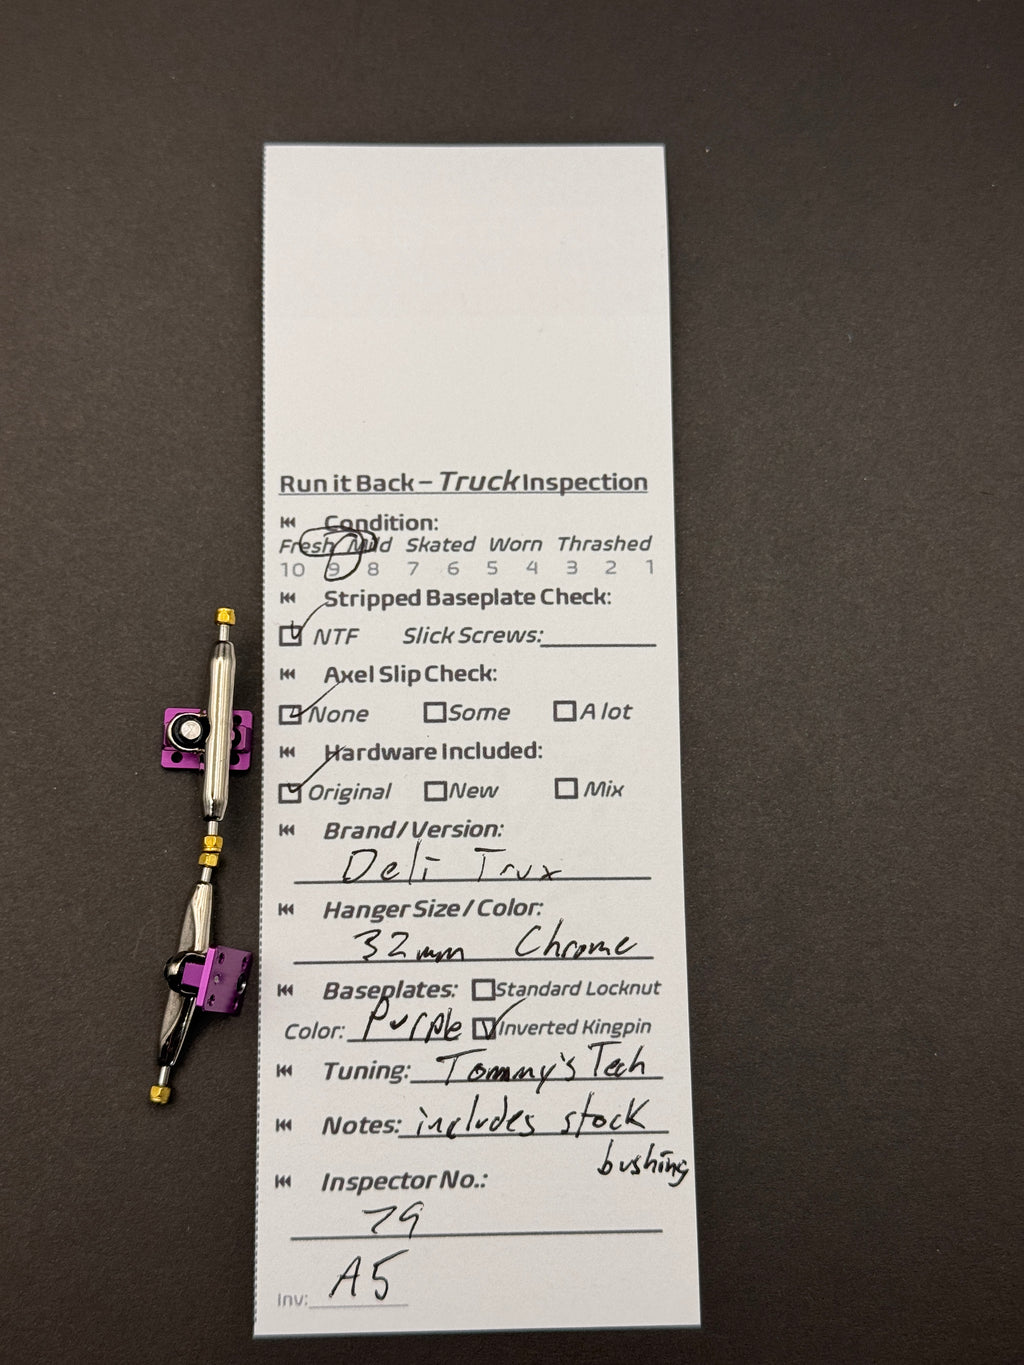 Run it Back – Truck Inspection
Condition:
Fresh Mild Skated Worn Thrashed
10 9 8 7 6 5 4 3 2 1
Stripped Baseplate Check:
NTF Slick Screws:
Axel Slip Check:
None Some A lot
Hardware Included:
Original New Mix
Brand/Version:
Deli Trux
Hanger Size/Color:
32mm Chrome
Baseplates: Standard Locknut
Color: Purple Inverted Kingpin
Tuning: Tommy's Tech
Notes: includes stock
bushing
Inspector No.:
79
Inv: A5